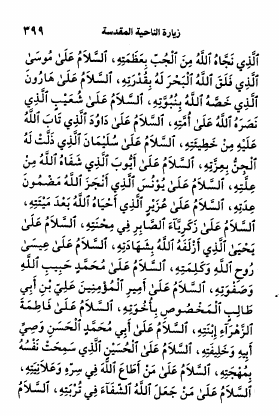 زيارة الناحية المقدسة ٣٩٩
الَّذِي نَجَّاهُ اللَّهُ مِنَ الْجُبِّ بِعَظَمَتِهِ، السَّلَامُ عَلَىٰ مُوسَىٰ
الَّذِي فَلَقَ اللَّهُ الْبَحْرَ لَهُ بِقُدْرَتِهِ، السَّلَامُ عَلَىٰ هَارُونَ
الَّذِي خَصَّهُ اللَّهُ بِنُبُوَّتِهِ، السَّلَامُ عَلَىٰ شُعَيْبٍ الَّذِي
نَصَرَهُ اللَّهُ عَلَىٰ أُمَّتِهِ، السَّلَامُ عَلَىٰ دَاوُدَ الَّذِي تَابَ اللَّهُ
عَلَيْهِ مِنْ خَطِيئَتِهِ، السَّلَامُ عَلَىٰ سُلَيْمَانَ الَّذِي ذَلَّتْ لَهُ
الْجِنُّ بِعِزَّتِهِ، السَّلَامُ عَلَىٰ أَيُّوبَ الَّذِي شَفَاهُ اللَّهُ مِنْ
عِلَّتِهِ، السَّلَامُ عَلَىٰ يُونُسَ الَّذِي أَنْجَزَ اللَّهُ مَضْمُونَ
عِدَتِهِ، السَّلَامُ عَلَىٰ عُزَيْرٍ الَّذِي أَحْيَاهُ اللَّهُ بَعْدَ مَيْتَتِهِ،
السَّلَامُ عَلَىٰ زَكَرِيَّاءَ الصَّابِرِ فِي مِحْنَتِهِ، السَّلَامُ عَلَىٰ
يَحْيَىٰ الَّذِي أَزْلَفَهُ اللَّهُ بِشَهَادَتِهِ، السَّلَامُ عَلَىٰ عِيسَىٰ
رُوحِ اللَّهِ وَكَلِمَتِهِ، السَّلَامُ عَلَىٰ مُحَمَّدٍ حَبِيبِ اللَّهِ
وَصَفْوَتِهِ، السَّلَامُ عَلَىٰ أَمِيرِ الْمُؤْمِنِينَ عَلِيِّ بْنِ أَبِي
طَالِبٍ الْمَخْصُوصِ بِأُخُوَّتِهِ، السَّلَامُ عَلَىٰ فَاطِمَةَ
الزَّهْرَاءِ ابْنَتِهِ، السَّلَامُ عَلَىٰ أَبِي مُحَمَّدٍ الْحَسَنِ وَصِيِّ
أَبِيهِ وَخَلِيفَتِهِ، السَّلَامُ عَلَىٰ الْحُسَيْنِ الَّذِي سَمِحَتْ نَفْسُهُ
بِمُهْجَتِهِ، السَّلَامُ عَلَىٰ مَنْ أَطَاعَ اللَّهَ فِي سِرِّهِ وَعَلَانِيَتِهِ،
السَّلَامُ عَلَىٰ مَنْ جَعَلَ اللَّهُ الشِّفَاءَ فِي تُرْبَتِهِ، السَّلَامُ